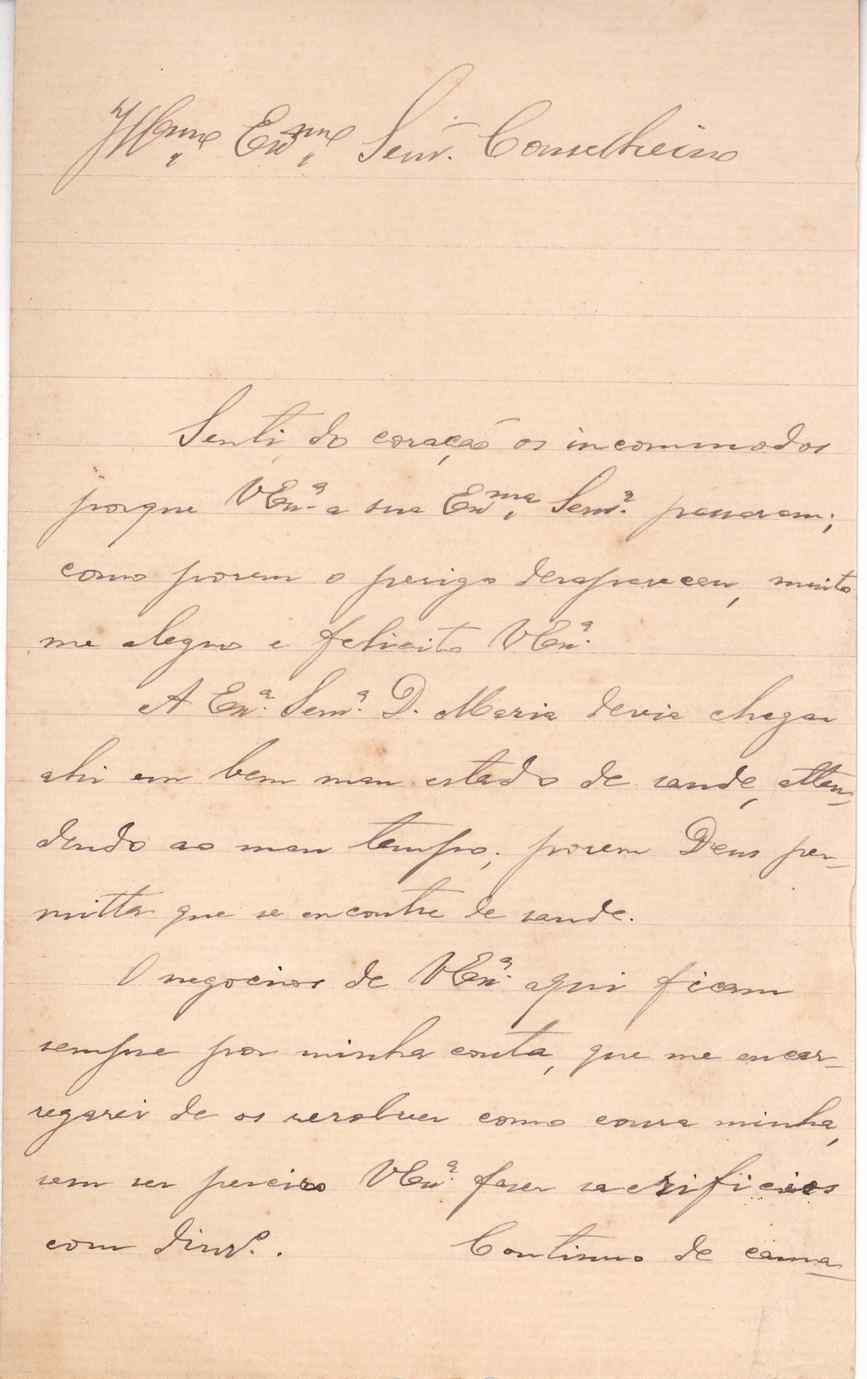 Illmo Exmo Senr. Conselheiro
Senti do coração os incommodos
porque VExa. e sua Exma Senra. passaram;
como porem o perigo desapareceu, muito
me alegro e felicito VExa.
A Exa. Senra. D. Maria devia chegar
ahi em bem mau estado de saude, atten-
dendo ao mau tempo; porem Deus per-
mitta que se encontre de saude.
O negocios de VExa. aqui ficam
sempre por minha conta, que me encar-
regarei de os resolver como cousa minha,
sem ser preciso VExa. fazer sacrificios
com dinro. . Continuo de cama